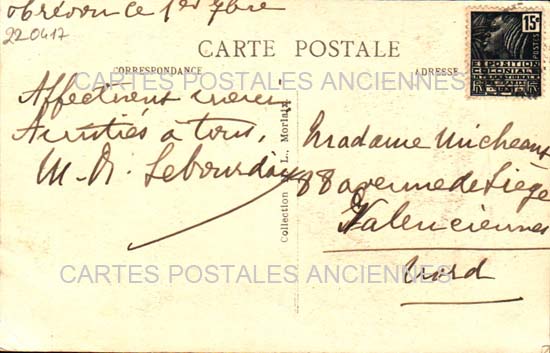 ce 1er 7bre
220417
CARTE POSTALE
CORRESPONDANCE
ADRESSE
15c
POSTES
EXPOSITION
COLONIALE
INTERNATIONALE
CARTES POSTALES ANCIENNES
Affectueux
Amitiés à tous,
M. Lebourdais
Collection L., Morlaix
Madame Micheaux
88 avenue de Liège
Valenciennes
Nord
CARTES POSTALES ANCIENNES